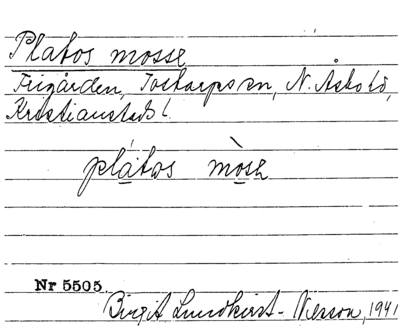 Platos mosse
Frigården, Tostarps sn, N. Åsbo hd,
Kristianstads l.
plátos mòse
Nr 5505
Birgit Lundkvist-Nilsson, 1941